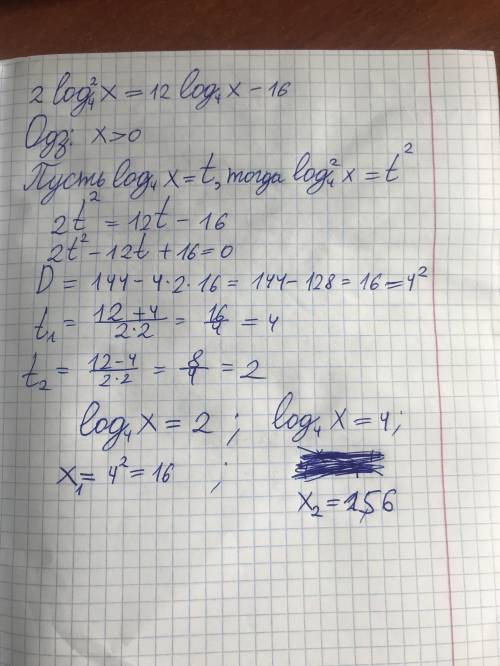 2 log₄² x = 12 log₄ x − 16
Одз: x > 0
Пусть log₄ x = t, тогда log₄² x = t²
2t² = 12t − 16
2t² − 12t + 16 = 0
D = 144 − 4·2·16 = 144 − 128 = 16 = 4²
t₁ = (12 + 4)/(2·2) = 16/4 = 4
t₂ = (12 − 4)/(2·2) = 8/4 = 2
log₄ x = 2 ; log₄ x = 4;
x₁ = 4² = 16 ;
x₂ = 256